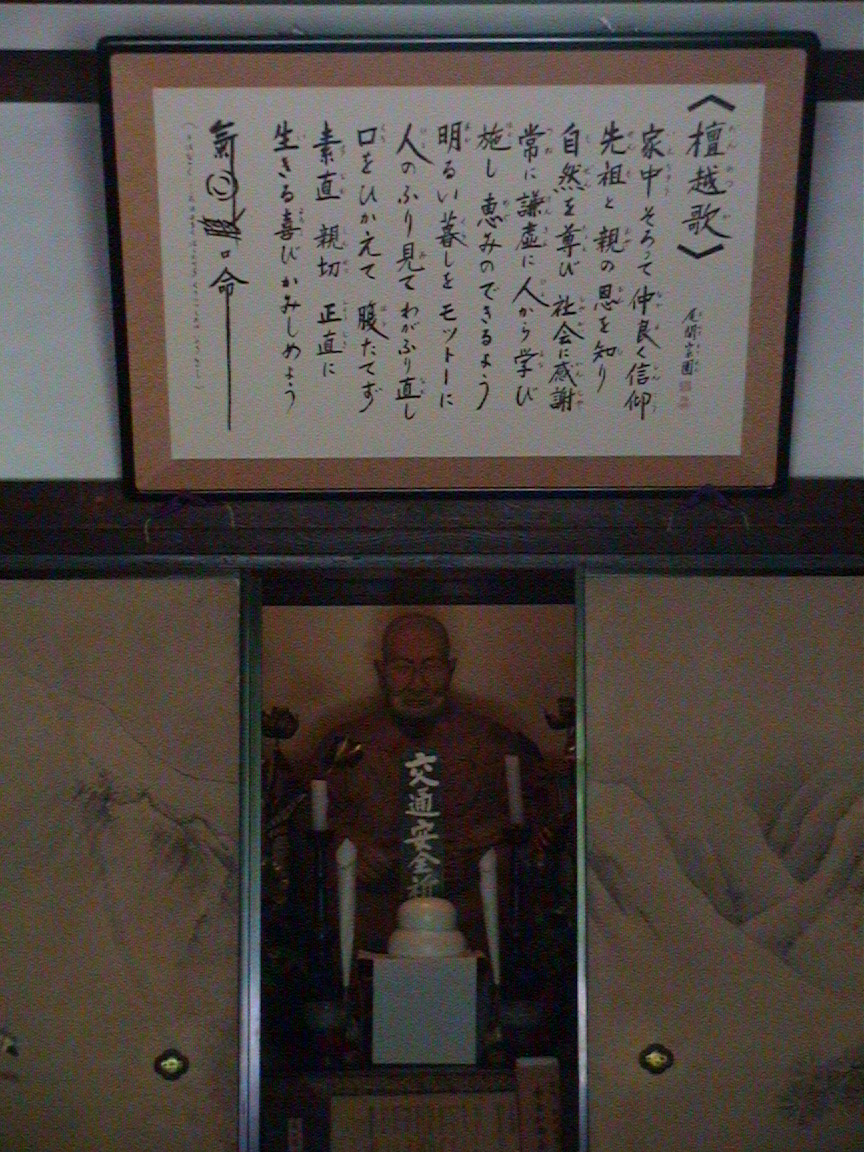 〈檀越歌〉
尾関宗園
家中そろって仲良く信仰
先祖と親の恩を知り
自然を尊び 社会に感謝
常に謙虚に人から学び
施し恵みのできるよう
明るい暮しをモットーに
人のふり見てわがふり直し
口をひかえて 腹たてず
素直 親切 正直に
生きる喜びかみしめよう
交通安全祈